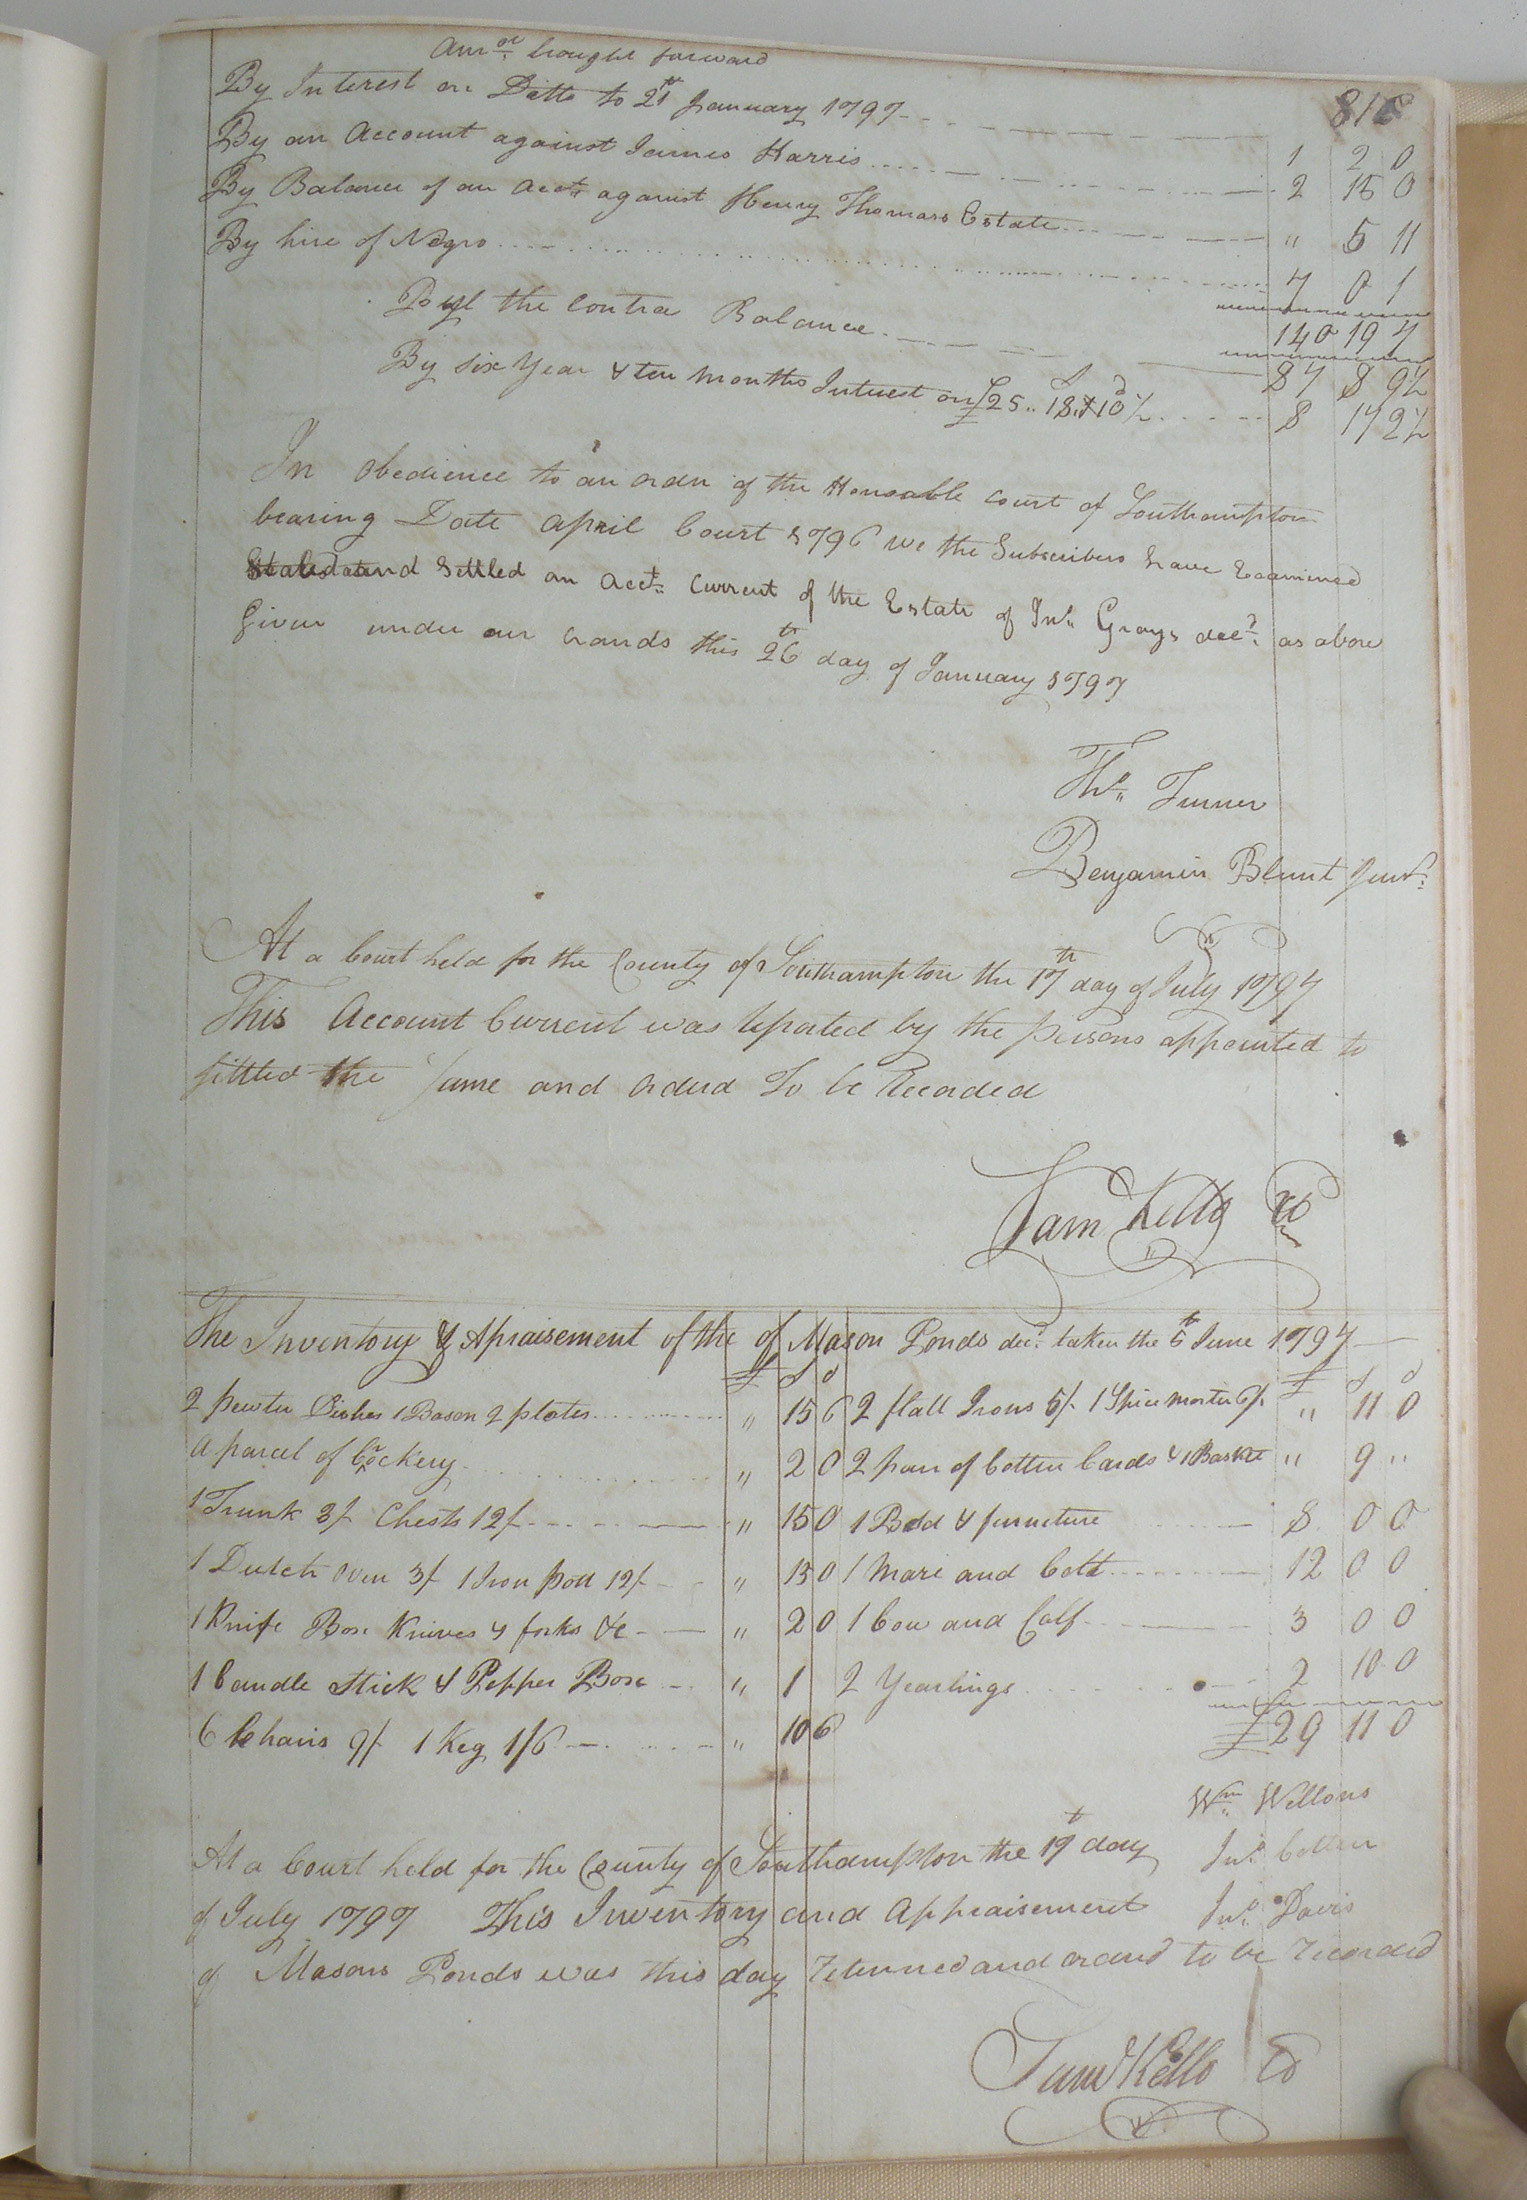 Amot brought forward
816
By Interest on Ditto to 21th January 1797 1 2 0
By an Account against James Harris 2 15 0
By Balance of an acct against Henry Thomass Estate " 5 11
By hire of Negro 7 0 1
140 19 7
the Contra Balance 87 8 9½
By six Year & ten months Interest on £25 .. 18 .. 10½ 8 17 2½
In obedience to an order of the Honoable Court of Southampton
bearing Date April Court 1796 we the Subscribers have Examined
Stated and Settled an acct Current of the Estate of Jno Grays decd as above
Given under our hands this 26th day of January 1797
Thos Turner
Benjamin Blunt Junr
At a Court held for the County of Southampton the 17th day of July 1797
This Account Current was reported by the persons appointed to
settled the same and orderd To be Recorded
Sam Kello CC
The Inventory & Apraisement of the of Mason Ponds decd taken the 5th June 1797
£ S d £ S d
2 pewter Dishes 1 Bason 2 plates " 15 6 2 flatt Irons 5/. 1 Spice morter 6/. " 11 0
A parcel of Crockery " 2 0 2 pair of Cotten Cards & 1 Basket " 9 "
1 Trunk 3/ Chests 12/ " 15 0 1 Bedd & furneture 8 0 0
1 Dutch oven 3/ 1 Iron pott 12/ " 15 0 1 Mare and Colt 12 0 0
1 Knife Box Knives & forks &c " 2 0 1 Cow and Calf 3 0 0
1 Candle Stick & Pepper Box " 1 2 Yearlings 2 10 0
6 Chairs 9/ 1 Keg 1/6 " 10 6 £29 11 0
Wm Wellons
At a Court held for the County of Southampton the 17t day Jno Cotten
of July 1797 This Inventory and Appraisement Jno Davis
of Masons Ponds was this day returned and orderd to be recorded
Saml Kello CC